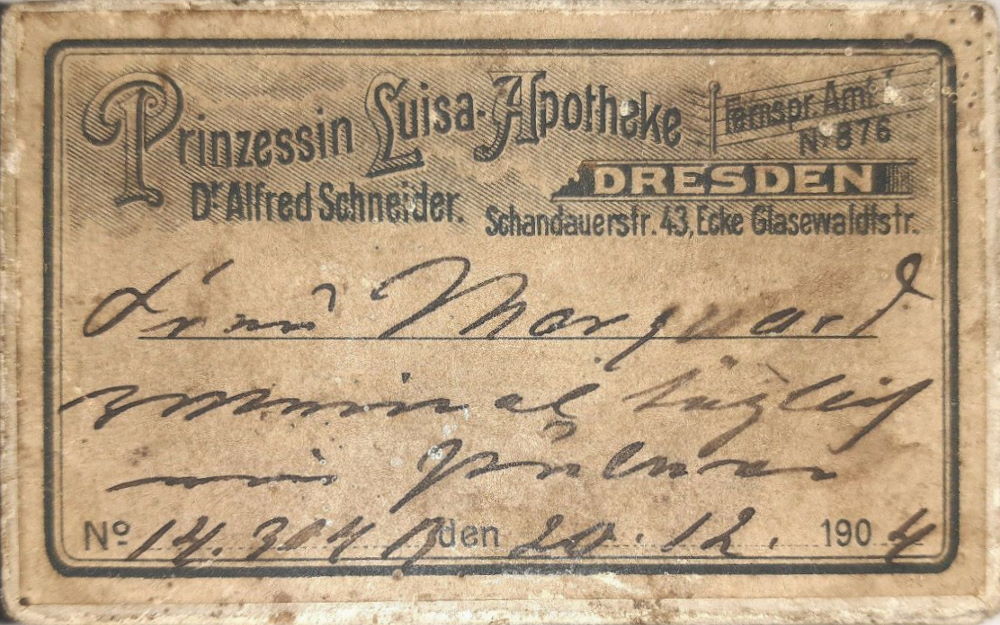 Prinzessin Luisa-Apotheke
Fernspr. Amt
No 876
DRESDEN
Dr Alfred Schneider.
Schandauerstr. 43, Ecke Glasewaldtstr.
Frau Marquard
mal täglich
ein Pulver
No 14.304 B den 20. 12. 1904